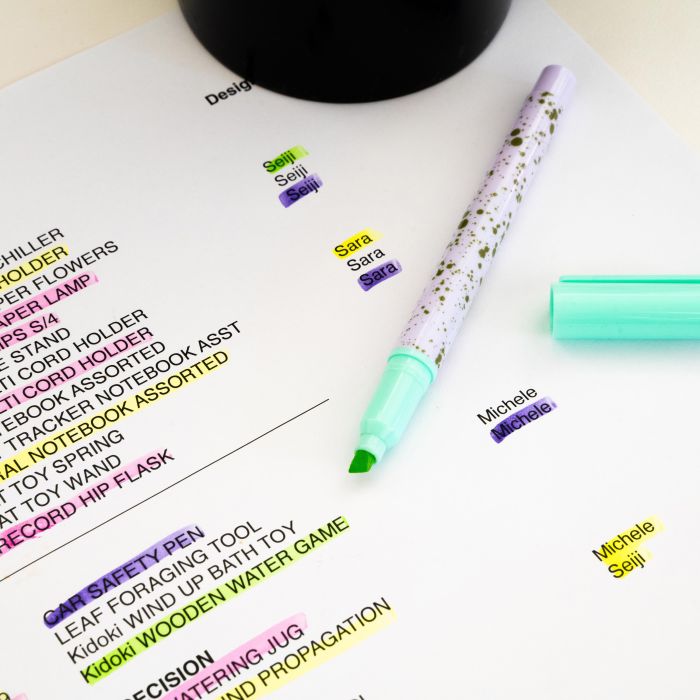 Desig
Seiji
Seiji
Seiji
Sara
Sara
Sara
Michele
Michele
Michele
Seiji
CHILLER
HOLDER
PER FLOWERS
APER LAMP
IPS S/4
E STAND
LTI CORD HOLDER
LTI CORD HOLDER
TEBOOK ASSORTED
T TRACKER NOTEBOOK ASST
AL NOTEBOOK ASSORTED
T TOY SPRING
AT TOY WAND
RECORD HIP FLASK
CAR SAFETY PEN
LEAF FORAGING TOOL
Kidoki WIND UP BATH TOY
Kidoki WOODEN WATER GAME
RECISION
WATERING JUG
ND PROPAGATION